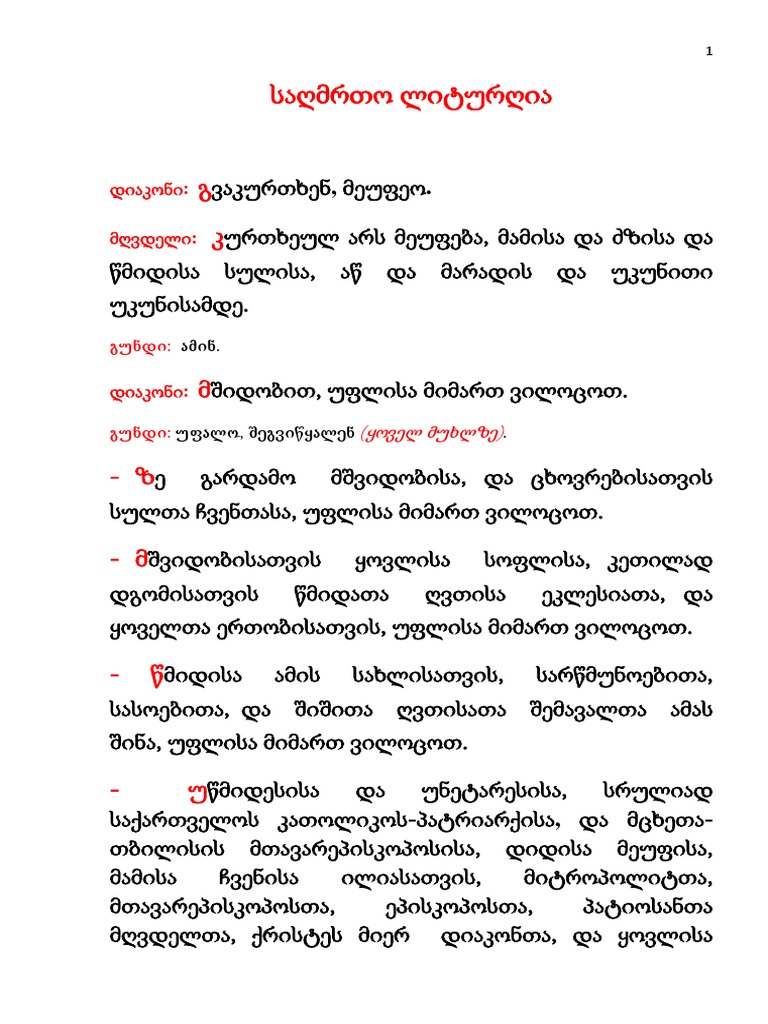 1
საღმრთო ლიტურღია
დიაკონი: გვაკურთხენ, მეუფეო.
მღვდელი: კურთხეულ არს მეუფება, მამისა და ძზისა და
წმიდისა სულისა, აწ და მარადის და უკუნითი
უკუნისამდე.
გუნდი: ამინ.
დიაკონი: მშიდობით, უფლისა მიმართ ვილოცოთ.
გუნდი: უფალო, შეგვიწყალენ (ყოველ მუხლზე).
- ზე გარდამო მშვიდობისა, და ცხოვრებისათვის
სულთა ჩვენთასა, უფლისა მიმართ ვილოცოთ.
- მშვიდობისათვის ყოვლისა სოფლისა, კეთილად
დგომისათვის წმიდათა ღვთისა ეკლესიათა, და
ყოველთა ერთობისათვის, უფლისა მიმართ ვილოცოთ.
- წმიდისა ამის სახლისათვის, სარწმუნოებითა,
სასოებითა, და შიშითა ღვთისათა შემავალთა ამას
შინა, უფლისა მიმართ ვილოცოთ.
- უწმიდესისა და უნეტარესისა, სრულიად
საქართველოს კათოლიკოს-პატრიარქისა, და მცხეთა-
თბილისის მთავარეპისკოპოსისა, დიდისა მეუფისა,
მამისა ჩვენისა ილიასათვის, მიტროპოლიტთა,
მთავარეპისკოპოსთა, ეპისკოპოსთა, პატიოსანთა
მღვდელთა, ქრისტეს მიერ დიაკონთა, და ყოვლისა